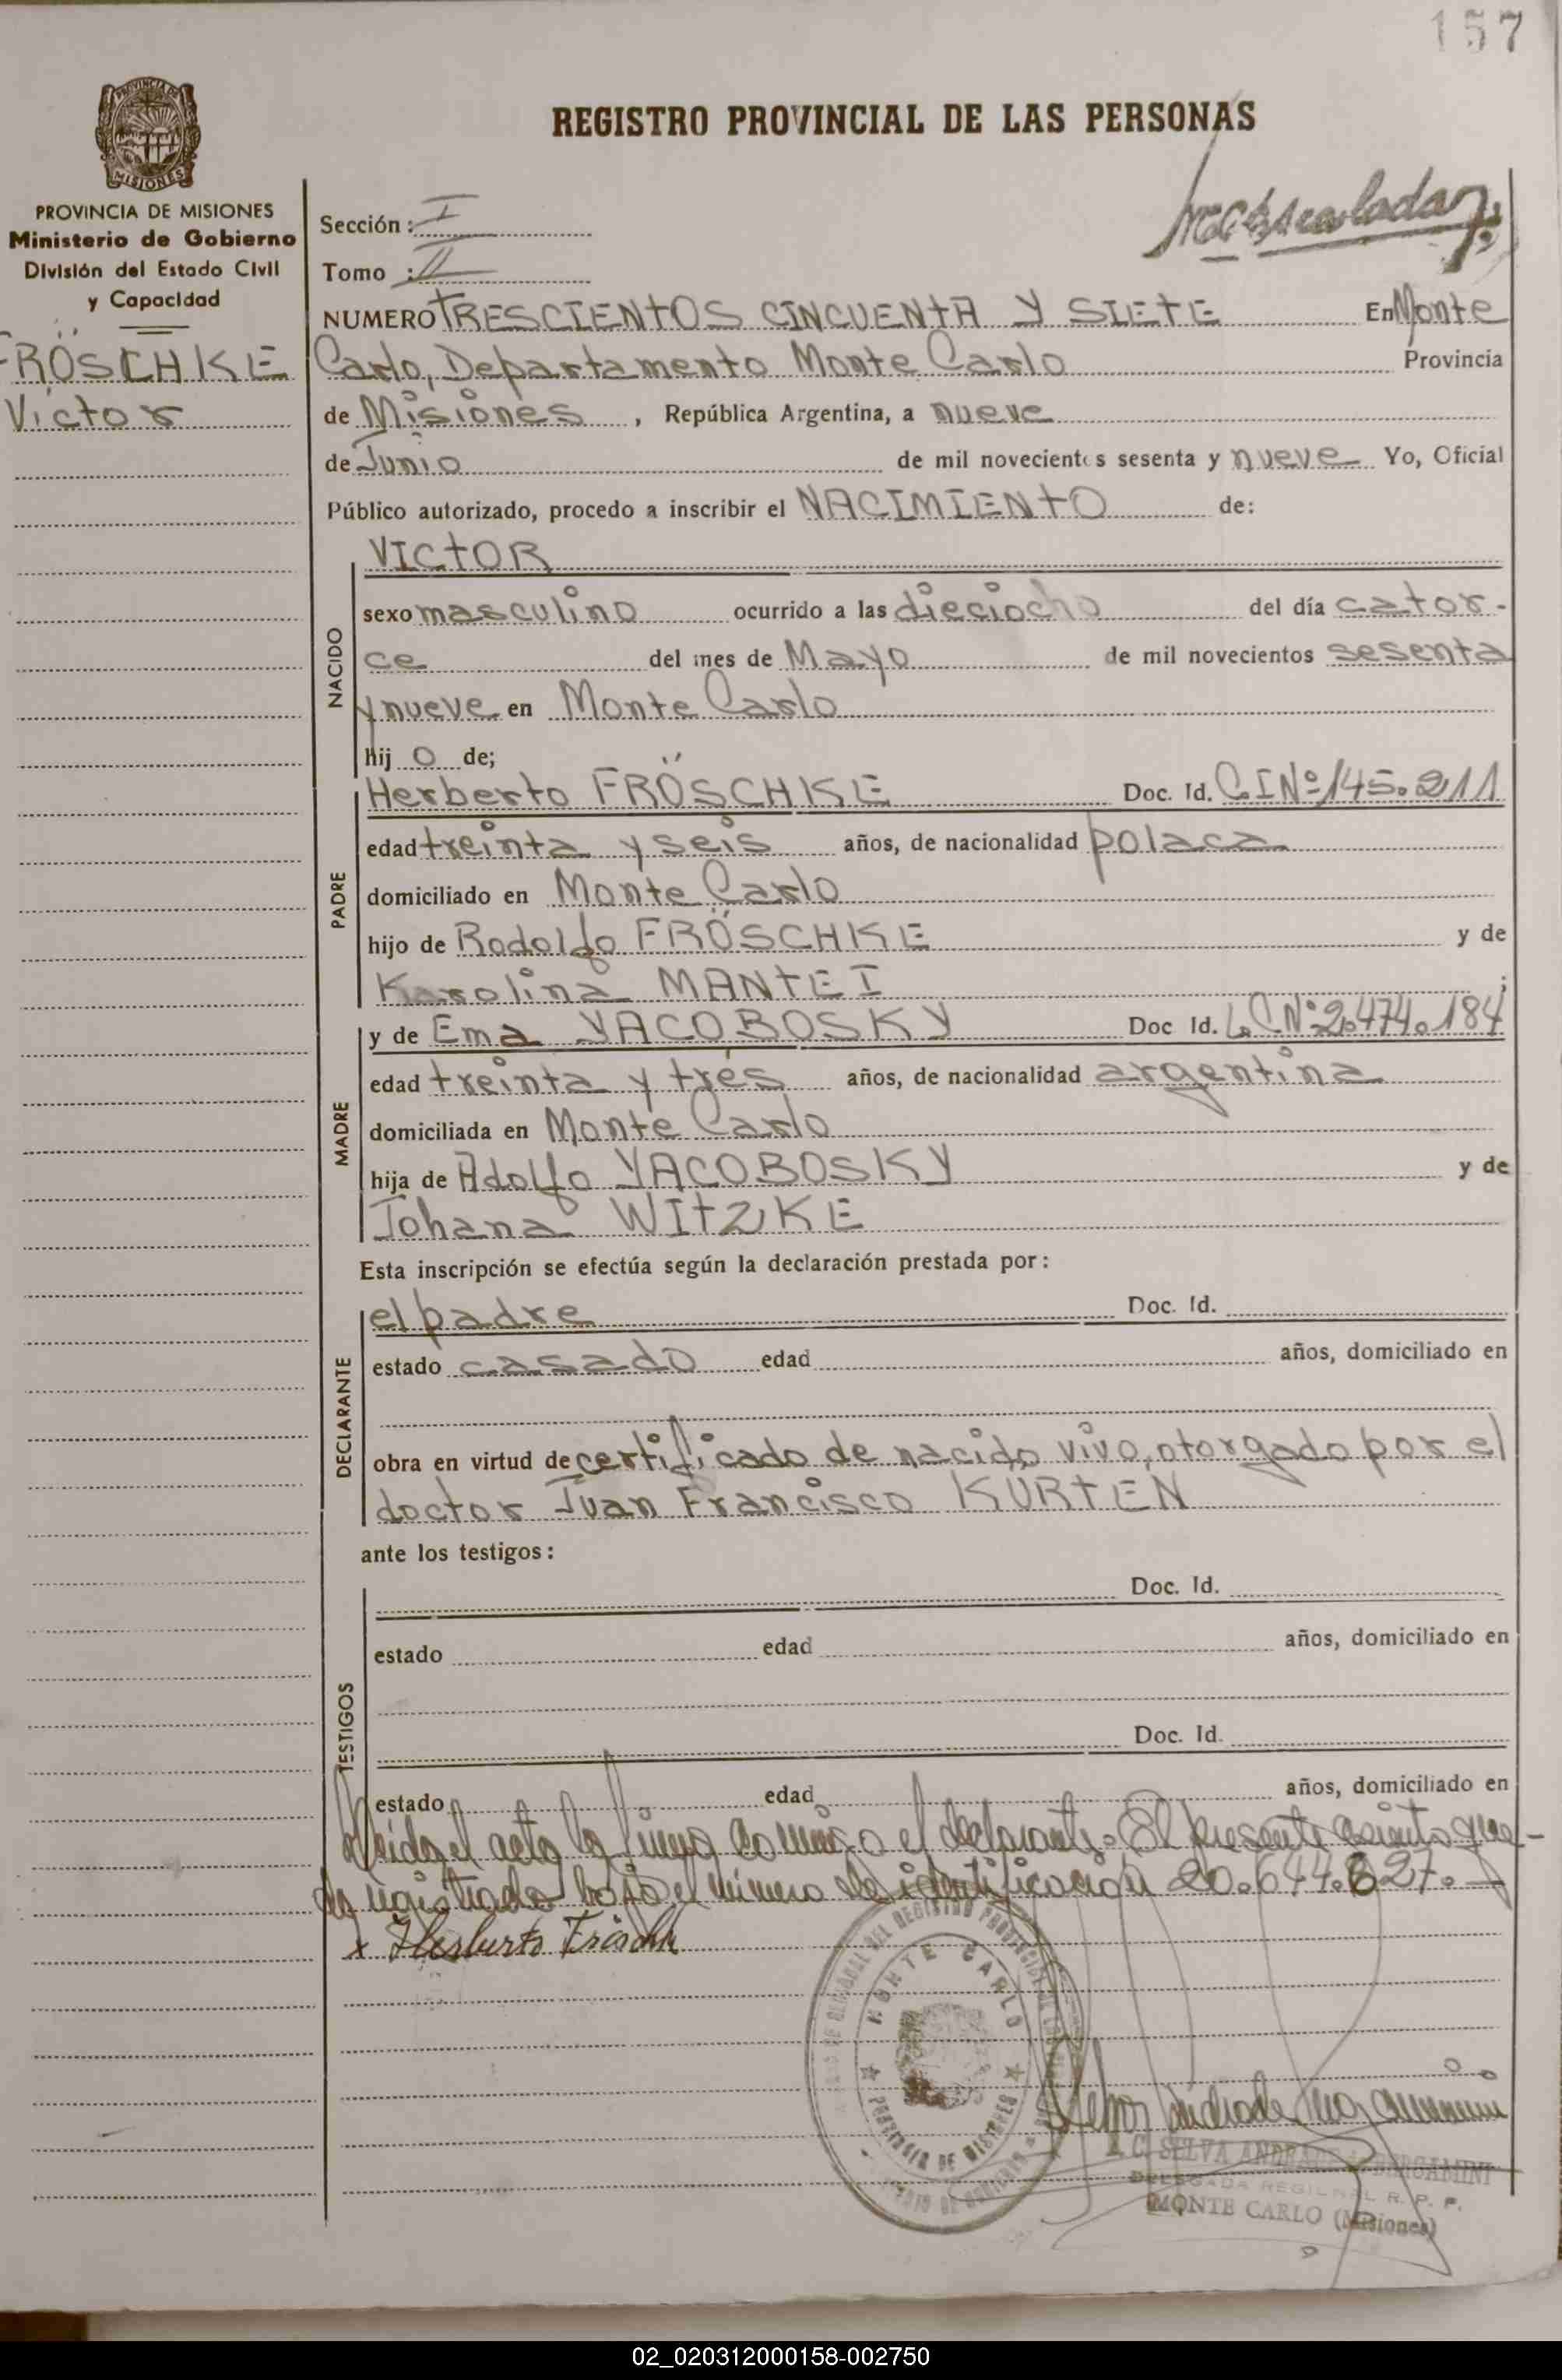 157
REGISTRO PROVINCIAL DE LAS PERSONAS
PROVINCIA DE MISIONES
MISIONES
PROVINCIA DE MISIONES
Ministerio de Gobierno
División del Estado Civil
y Capacidad
FRÖSCHKE
Víctor
Sección: I
Tomo : II
NUMERO TRESCIENTOS CINCUENTA Y SIETE En Monte
Carlo, Departamento Monte Carlo Provincia
de Misiones, República Argentina, a nueve
de Junio de mil novecientos sesenta y nueve Yo, Oficial
Público autorizado, procedo a inscribir el NACIMIENTO de:
NACIDO
VICTOR
sexo masculino ocurrido a las dieciocho del día cator-
ce del mes de Mayo de mil novecientos sesenta
y nueve en Monte Carlo
hijo de;
PADRE
Herberto FRÖSCHKE Doc. Id. C.I Nº 145.211
edad treinta y seis años, de nacionalidad polaca
domiciliado en Monte Carlo
hijo de Rodolfo FRÖSCHKE y de
Karolina MANTEI ;
MADRE
y de Ema YACOBOSKY Doc Id. L.C Nº 2.474.184
edad treinta y tres años, de nacionalidad argentina
domiciliada en Monte Carlo
hija de Adolfo YACOBOSKY y de
Johana WITZKE
Esta inscripción se efectúa según la declaración prestada por:
DECLARANTE
el padre Doc. Id.
estado casado edad años, domiciliado en
obra en virtud de certificado de nacido vivo, otorgado por el
doctor Juan Francisco KURTEN
ante los testigos:
TESTIGOS
Doc. Id.
estado edad años, domiciliado en
Doc. Id.
estado edad años, domiciliado en
Leida el acta la firma conmigo el declarante. El presente asiento que-
da registrado bajo el número de identificación 20.644.827.
x Herberto Fröschke
MONTE CARLO
PROVINCIA DE MISIONES
C. SELVA ANDRADE BERGAMINI
DELEGADA REGIONAL R. P. P.
MONTE CARLO (Misiones)
02_020312000158-002750